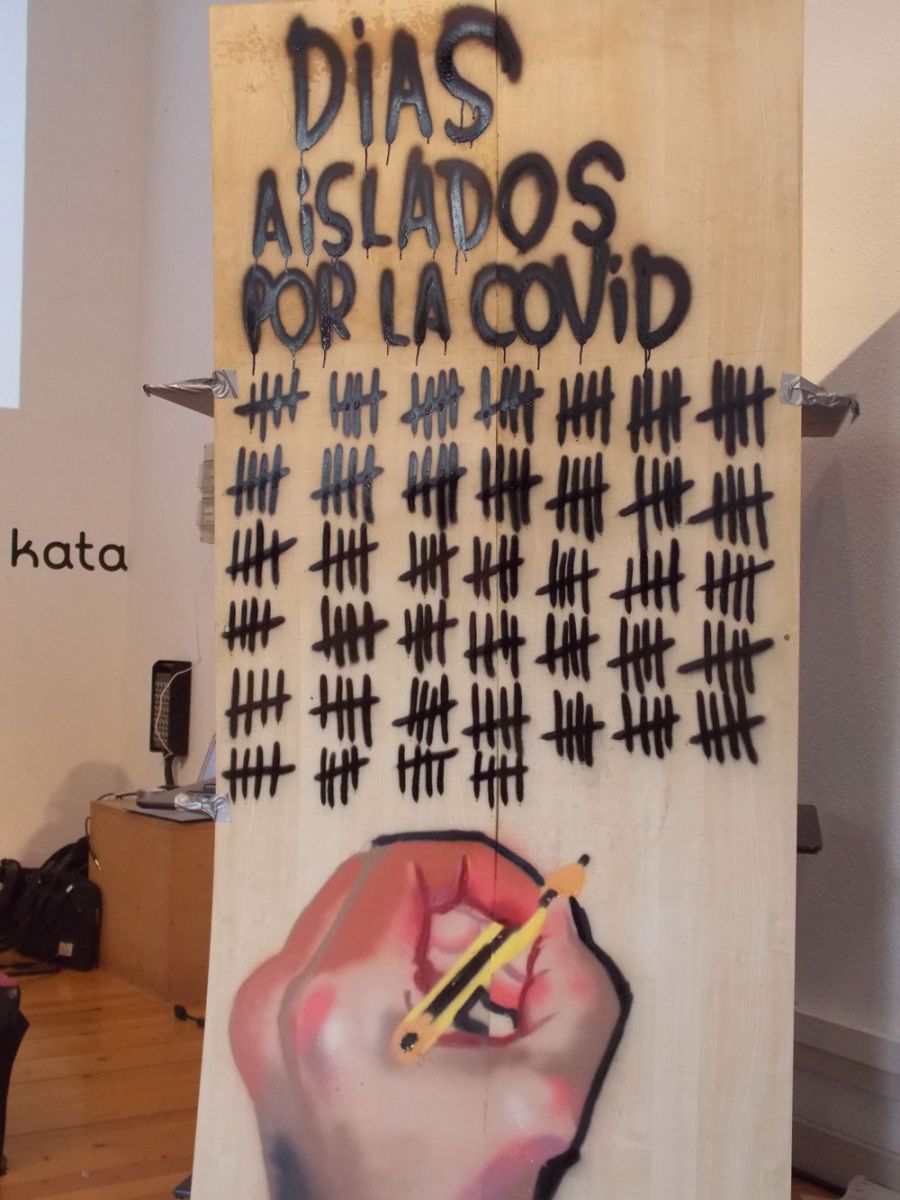 DiAS
AiSLADOS
POR LA COViD
kata